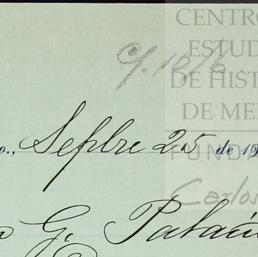 CENTRO
ESTUD
DE HIST
DE ME
FUND
Carlos
9/.10/6
o., Sepbre 25 de 19
G. Palaci